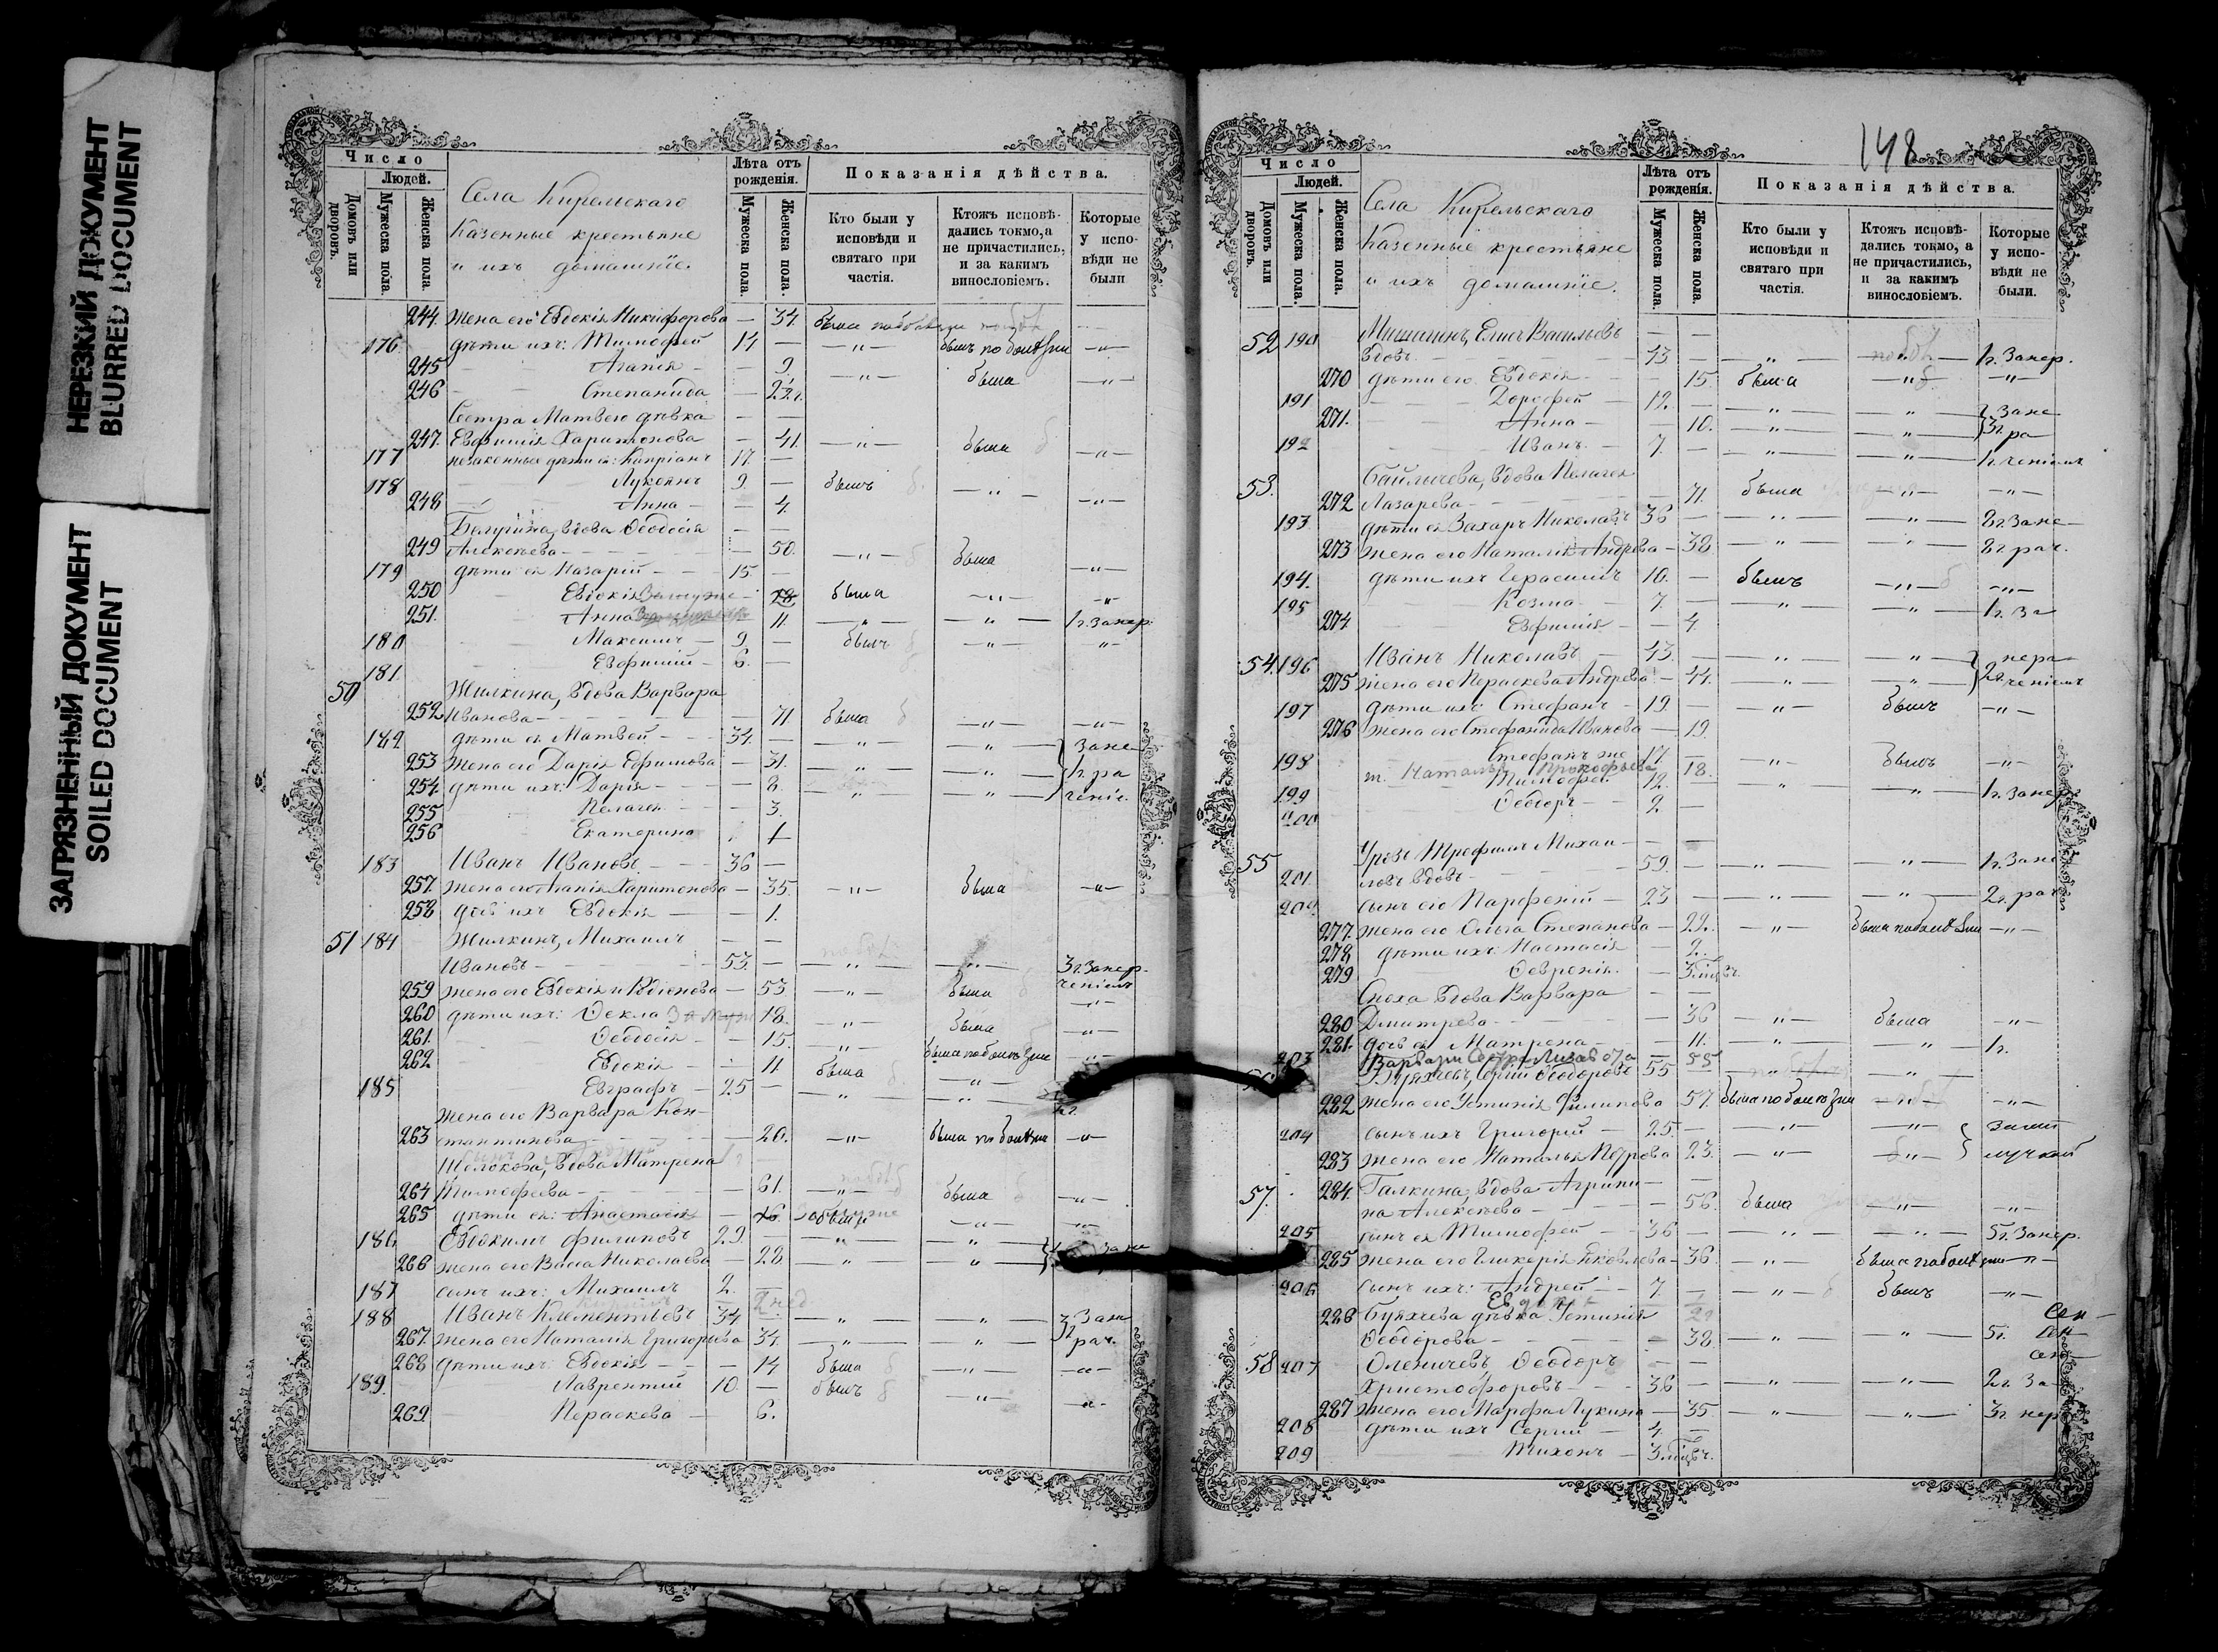 НЕРЕЗКИЙ ДОКУМЕНТ
BLURRED DOCUMENT
ЗАГРЯЗНЕННЫЙ ДОКУМЕНТ
SOILED DOCUMENT
Число
Людей.
Домовъ или дворовъ.
Мужеска пола.
Женска пола.
Села Кирельскаго
Казенные крестьяне
и ихъ домашніе.
Лѣта отъ рожденія.
Мужеска пола.
Женска пола.
Показанія дѣйства.
Кто были у исповѣди и святаго при частія.
Ктожъ исповѣ- дались токмо, а не причастились, и за какимъ винословіемъ.
Которые у испо- вѣди не были
244. жена его Евдокія Никифорова — 34.
176. дѣти ихъ: Тимофей 14 — — " — былъ по болѣзни — " —
245 Агапія — 9. — " — была — " —
246 Степанида —
Сестра Матвею дѣвка — —
247. Евфимія Харитонова — 41. — " — была — " —
177 незаконные дѣти ея: Кипріанъ 17. —
178 Лукіянъ 9. — былъ — " — — " —
248 Анна — 4.
вдова Ѳеодосія — —
249 Алексѣева — 50. — " — была — " —
179 дѣти ея Назарій 15. —
250 Евдокія 18 была — " — — " —
251. Анна 11. — " — — " — 1 г. занер.
180 Максимъ 9. — былъ — " — — " —
181 Евфимій 6. —
50 Жилкина, вдова Варвара
252 Иванова — 71 была — " — — " —
182 дѣти ея Матвей 34. — — " — — " — зане
253 жена его Дарія Ефимова — 31. — " — — " — 1 г. ра
254. дѣти ихъ: Дарія — 8. — " — — " — ченіе.
255 Пелагея — 3.
256 Екатерина 1
183 Иванъ Ивановъ 36 —
257. жена его Агапія Харитонова — 35. — " — была — " —
258 дочь ихъ Евдокія — 1.
51 184 Жилкинъ, Михаилъ — —
Ивановъ 53. — — " — — " — 3 г. занер.
ченіемъ
259 жена его Евдокія Родіонова — 53. — " — была — " —
260 дѣти ихъ: Ѳекла 18. — " — была — " —
261. Ѳеодосія — 15. — " — была по болѣзни — " —
262. Евдокія — 11 была — " —
185 Евграфъ — 25 — — " — — " —
жена его Варвара Кон-
263 стантинова — 20. — " — была по болѣзни — " —
вдова Матрена
264 Тимофеева — 61. — " — была — " —
265 дѣти ея: Анастасія — 16. — " — — " —
186 Евдокимъ Филиповъ 29. — — " — — " — зане
266 жена его Васса Николаева — 28. — " — — " —
187 сынъ ихъ: Михаилъ 2. —
188 Иванъ Клементьевъ 34 — " — — " — зане
267. жена его Наталія Григорьева 34. — " — — " — рач.
268 дѣти ихъ: Евдокія — 14 была — " — — " —
189. Лаврентій 10. — былъ — " — — " —
269. Параскева — 6.
148
Число
Людей.
Домовъ или дворовъ.
Мужеска пола.
Женска пола.
Села Кирельскаго
Казенные крестьяне
и ихъ домашніе.
Лѣта отъ рожденія.
Мужеска пола.
Женска пола.
Показанія дѣйства.
Кто были у исповѣди и святаго при частія.
Ктожъ исповѣ- дались токмо, а не причастились, и за какимъ винословіемъ.
Которые у испо- вѣди не были.
52 190 Мишагинъ, Васильевъ — —
вдовъ 43 — — " — 1 г. занер.
270 дѣти его Евдокія — 15. была — " — — " —
191 Дорофей 12. — — " — — " — зане
271. Анна — 10. — " — — " — ра
192 Иванъ 7. — — " — — " — ченіемъ
53. вдова Пелагея
272 Лазарева — 71. была — " — — " —
193 дѣти ея Захаръ Николаевъ 36 — — " — — " — 8 г. зане
273 жена его Наталія Андреева — 38 — " — — " — 8 г. рач.
194. дѣти ихъ Герасимъ 10. — былъ — " — — " —
195 Козма 7. — — " — — " — 1 г. за
274 Евфимія — 4.
54. 196 Иванъ Николаевъ 43. — — " — — " — нера
275 жена его Параскева Андреева — 44. — " — — " — ченіемъ
197 дѣти ихъ: Стефанъ 19. — — " — былъ — " —
276 жена его Стефанида Иванова — 19.
198 Стефанъ же 17. — — " — былъ — " —
ж. Наталья Прокофьева 18.
199 Тимофей 12. — " — — " — 1 г. занер.
200 Ѳеодоръ 2. —
55 Трефилъ Михаи- — —
201. ловъ вдовъ 59. — — " — — " — 1 г. зане
202. сынъ его Парфеній 23 — — " — — " — 2 г. рач.
277. жена его Ольга Степанова — 22. — " — была по болѣзни — " —
278. дѣти ихъ: Настасія — 2.
279 Ѳевронія — 3 мѣсѣ.
Сноха вдова Варвара — —
280 Дмитрева — 36 — " — была — " —
281. дочь ея Матрена — 11. — " — — " — 1 г.
203 Сергій Ѳеодоровъ 55 — " — — " —
282 жена его Устинія Филипова 57. была по болѣзни — " — — " —
204 сынъ ихъ Григорій 25. — — " — — " —
283 жена его Наталья Петрова 23. — " — — " — лучкой
57. 284. Галкина, вдова Агрипи- — —
на Алексѣева — 56. была — " — — " —
205 сынъ ея Тимофей 36 — — " — — " — 5 г. занер.
285 жена его Гликерія Яковлева 36. — " — была по болѣзни — " —
206 сынъ ихъ: Андрей 7. — — " — былъ — " —
286 Буяхчева дѣвка Устинія
Ѳеодорова — 38. — " — — " — 5 г.
58 207 Оленичевъ, Ѳеодоръ — —
Христофоровъ 36 — — " — — " — 2 г. за
287 жена его Марфа Лукина 35. — " — — " — 3 г. нер
208 дѣти ихъ Сергій 4. —
209 Тихонъ 3 мѣсѣ.